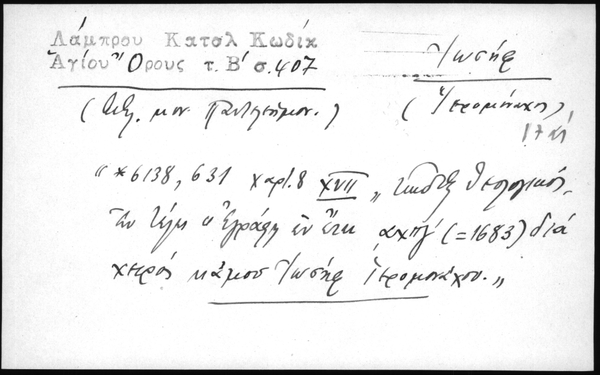 Λάμπρου Κατλ Κωδίκ
Ἁγίου Ὄρους τ. Β' σ. 407
Ἰωσὴφ
(Βιβλ. μον Παντελεήμον.)
(Ἱερομόναχος)
17 αἰ
"*6138, 631 χαρτ. 8 XVII „ Κῶδιξ Θεολογικός.
Ἐν τέλει "Ἐγράφη ἐν ἔτει αχπγ' (=1683) διὰ
χειρός κἀμοῦ Ἰωσὴφ Ἱερομονάχου.„